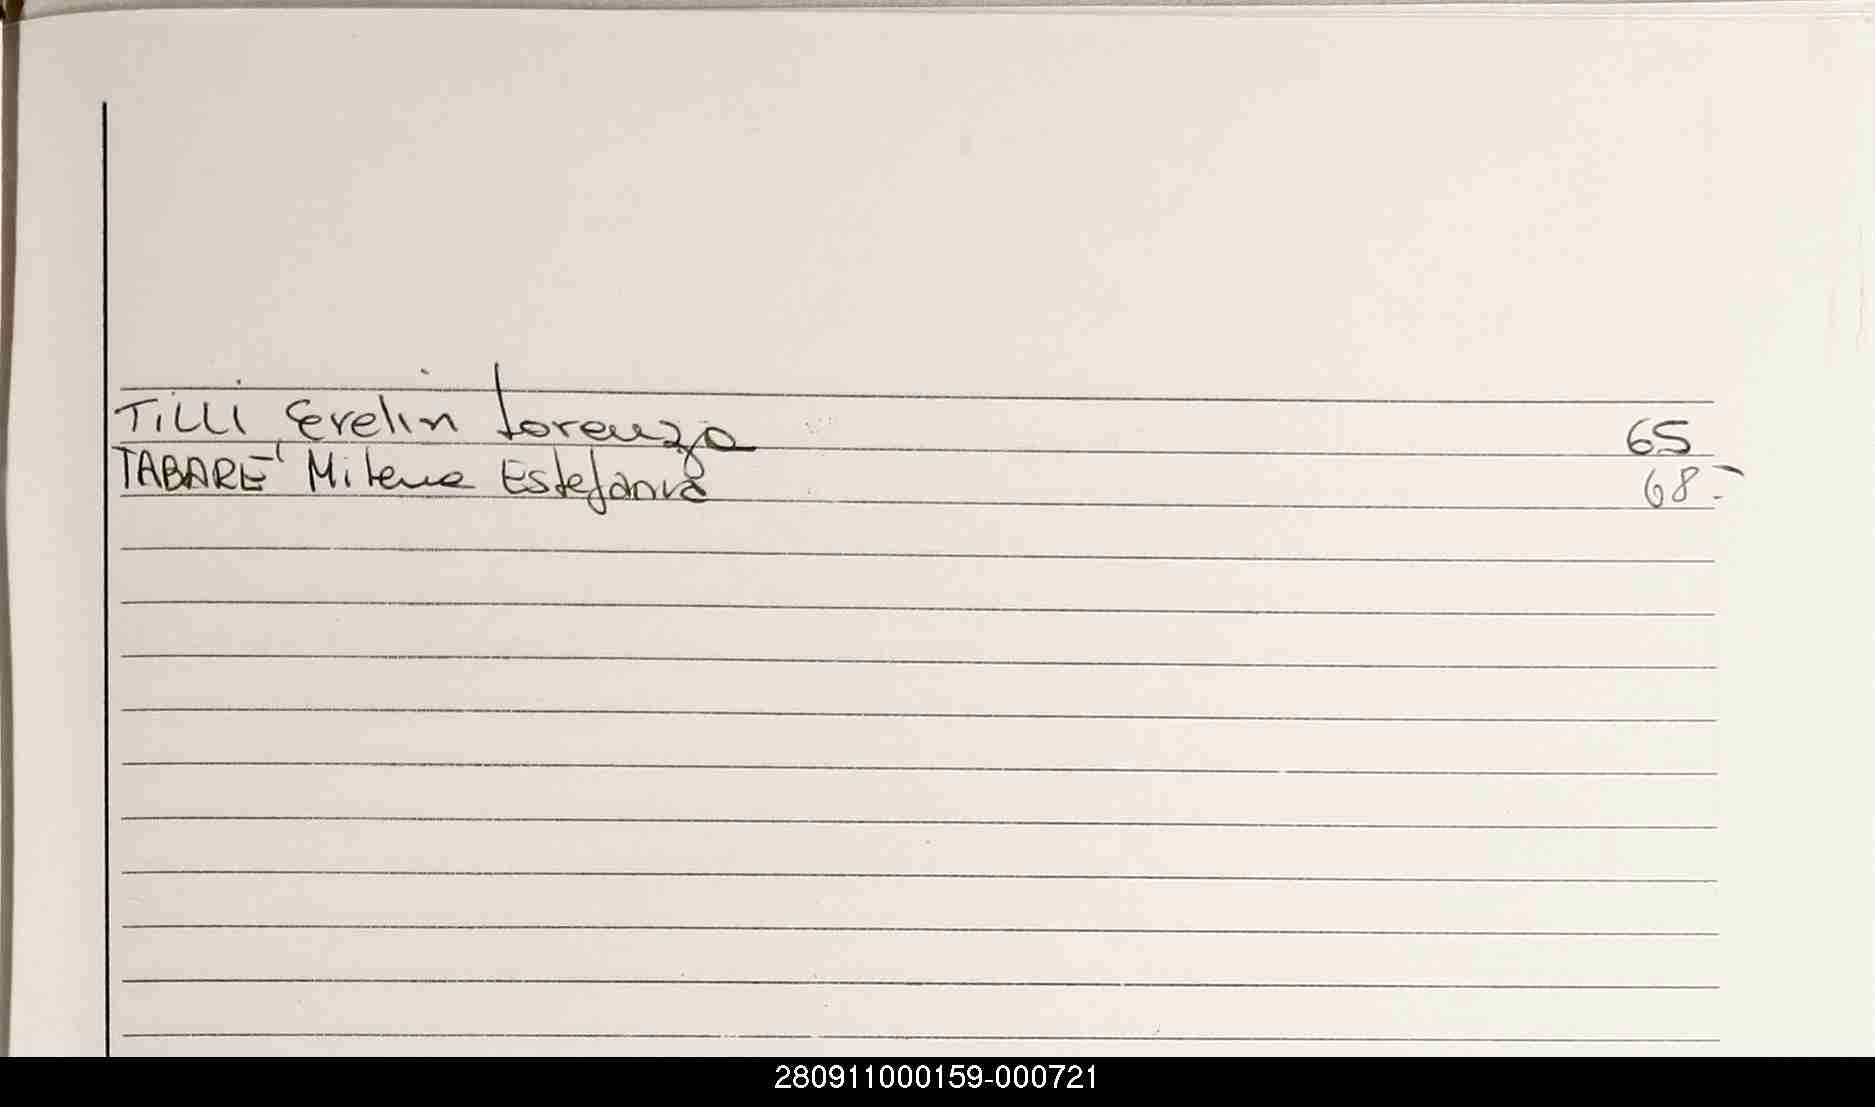 TILLI Evelin Lorenza 65
TABARÉ Milena Estefanía 68.-
280911000159-000721